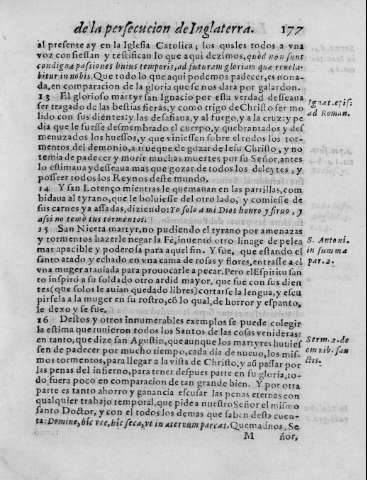 de la persecucion de Inglaterra. 177
al presente ay en la Iglesia Catolica; los quales todos a vna
voz confiessan y testifican lo que aqui dezimos, quòd non sunt
condignæ passiones huius temporis, ad futuram gloriam quæ reuela-
bitur in nobis. Que todo lo que aqui podemos padecer, es nona-
da, en comparacion de la gloria que se nos dara por galardon.
13 El glorioso martyr san Ignacio por esta verdad desseaua
ser tragado de las bestias fieras, y como trigo de Christo ser mo
lido con sus dientes: y las desafiaua, y al fuego, y a la cruz: y pe
dia que le fuesse desmembrado el cuerpo, y quebrantados y des
menuzados los huessos, y que viniessen sobre el todos los tor-
mentos del demonio, a trueque de gozar de Iesu Christo, y no
temia de padecer y morir muchas muertes por su Señor, antes
lo estimaua y desseaua mas que gozar de todos los deleytes, y
posseer todos los Reynos deste mundo.
Ignat. epis.
ad Roman.
14 Y san Lorenço mientras le quemauan en las parrillas, com
bidaua al tyrano, que le boluiesse del otro lado, y comiesse de
sus carnes ya assadas, diziendo: Yo solo a mi Dios honro y siruo, y
assi no temo tus tormentos.
15 San Niceta martyr, no pudiendo el tyrano por amenazas
y tormentos hazerle negar la Fè, inuentò otro linage de pelea
mas apacible y poderosa para aquel fin. Y fue, que estando el
santo atado y echado en vna cama de rosas y flores, entrasse a el
vna muger ataviada para prouocarle a pecar. Pero el Espiritu san
to inspirò a su soldado otro ardid mayor, que fue con sus dien
tes (que solos le auian quedado libres) cortarse la lengua, y escu
pirsela a la muger en su rostro, cõ lo qual, de horror y espanto,
le dexo y se fue.
S. Antoni.
in summa
par. 2.
16 Destos y otros innumerables exemplos se puede colegir
la estima que tuuieron todos los Santos de las cosas venideras:
en tanto, que dize san Agustin, que aunque los martyres huuies
sen de padecer por mucho tiempo, cada dia de nueuo, los mis-
mos tormentos, para llegar a la vista de Christo, y assi passar por
las penas del infierno, para tener despues parte en su gloria, to-
do fuera poco en comparacion de tan grande bien. Y por otra
parte es tanto ahorro y ganancia escusar las penas eternas con
qualquier trabajo temporal, que pide a nuestro Señor el mismo
santo Doctor, y con el todos los demas que saben desta cuen-
ta: Domine, hîc vre, hîc seca, vt in æternum parcas. Quemadnos, Se
Serm. 2. de
san-
ctis.
M ñor,